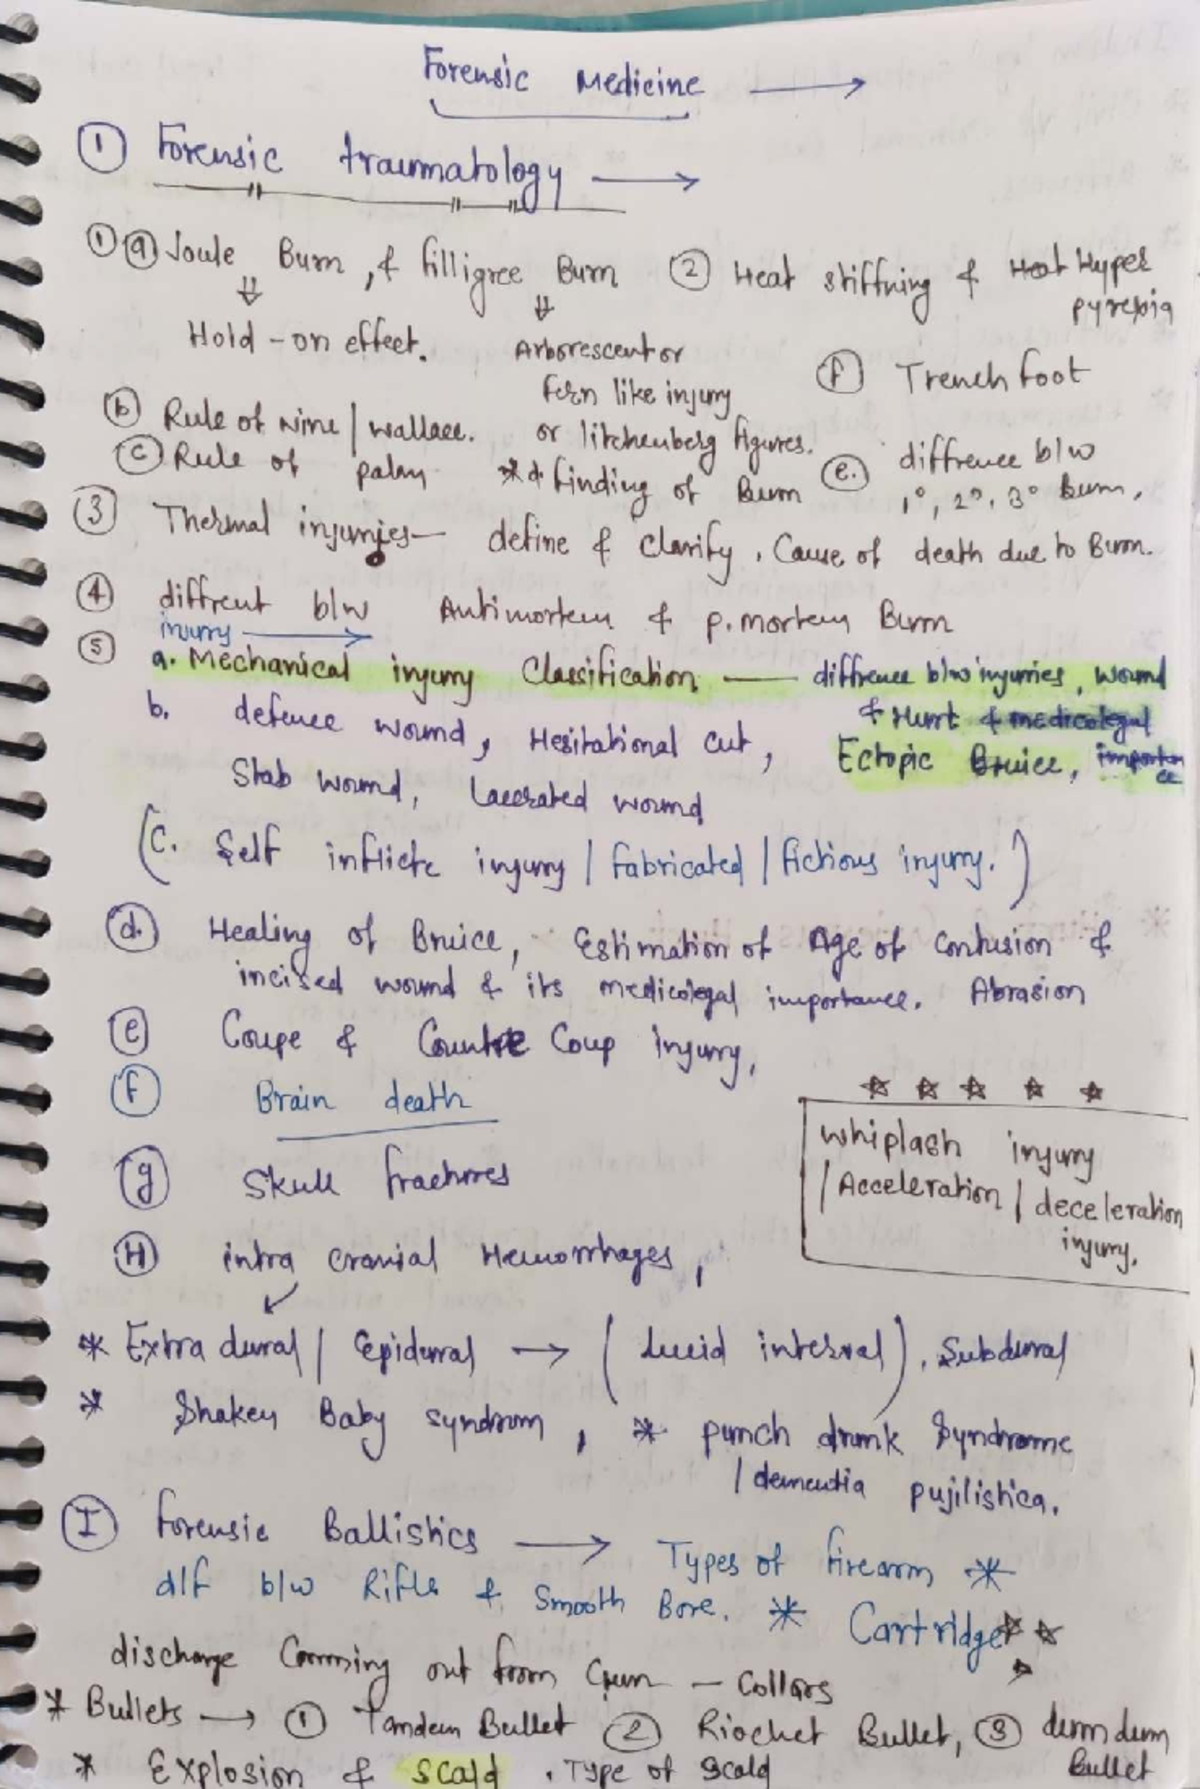 Forensic Medicine →
① Forensic traumatology →
① ⓐ Joule Burn, & filligree Burn ② Heat stiffning & Heat Hyper pyrexia
⇓ ⇓
Hold-on effect. Arborescent or
fern like injury ⓕ Trench foot
ⓑ Rule of Nine | Wallace. or litchenberg figures.
ⓒ Rule of palm ** finding of Burn ⓔ. diffrence b/w
1°, 2°, 3° Burn.
③ Thermal injuries— define & Clarify. Cause of death due to Burn.
④ diffrent b/w Antimortem & p.mortem Burn
⑤ injury →
a. Mechanical injury Classification — diffrence b/w injuries, wound
& Hurt & medicolegal
b. defence wound, Hesitational cut, Ectopic Bruice, importance
Stab wound, Lacerated wound
(C. Self inflicte injury | fabricated | fictious injury.)
ⓓ Healing of Bruice, Estimation of Age of Contusion &
incised wound & its medicolegal importance. Abrasion
ⓔ Coupe & Countre Coup injury,
ⓕ Brain death
☆ ☆ ☆ ☆ ☆
whiplash injury
| Acceleration | deceleration
injury.
ⓖ Skull fractures
Ⓗ intra cranial Hemorrhages,
* Extra dural | Epidural → (Lucid interval), Subdural
* Shaken Baby syndrom, * punch drunk Syndrome
| dementia pujilistica.
Ⓘ Forensic Ballistics → Types of firearm *
d/f b/w Rifle & Smooth Bore. * Cartridge ☆ ☆
discharge Comming out from Gun — Collars
* Bullets → ① Tandem Bullet ② Riochet Bullet, ③ dum dum
Bullet
* Explosion & Scald . Type of Scald